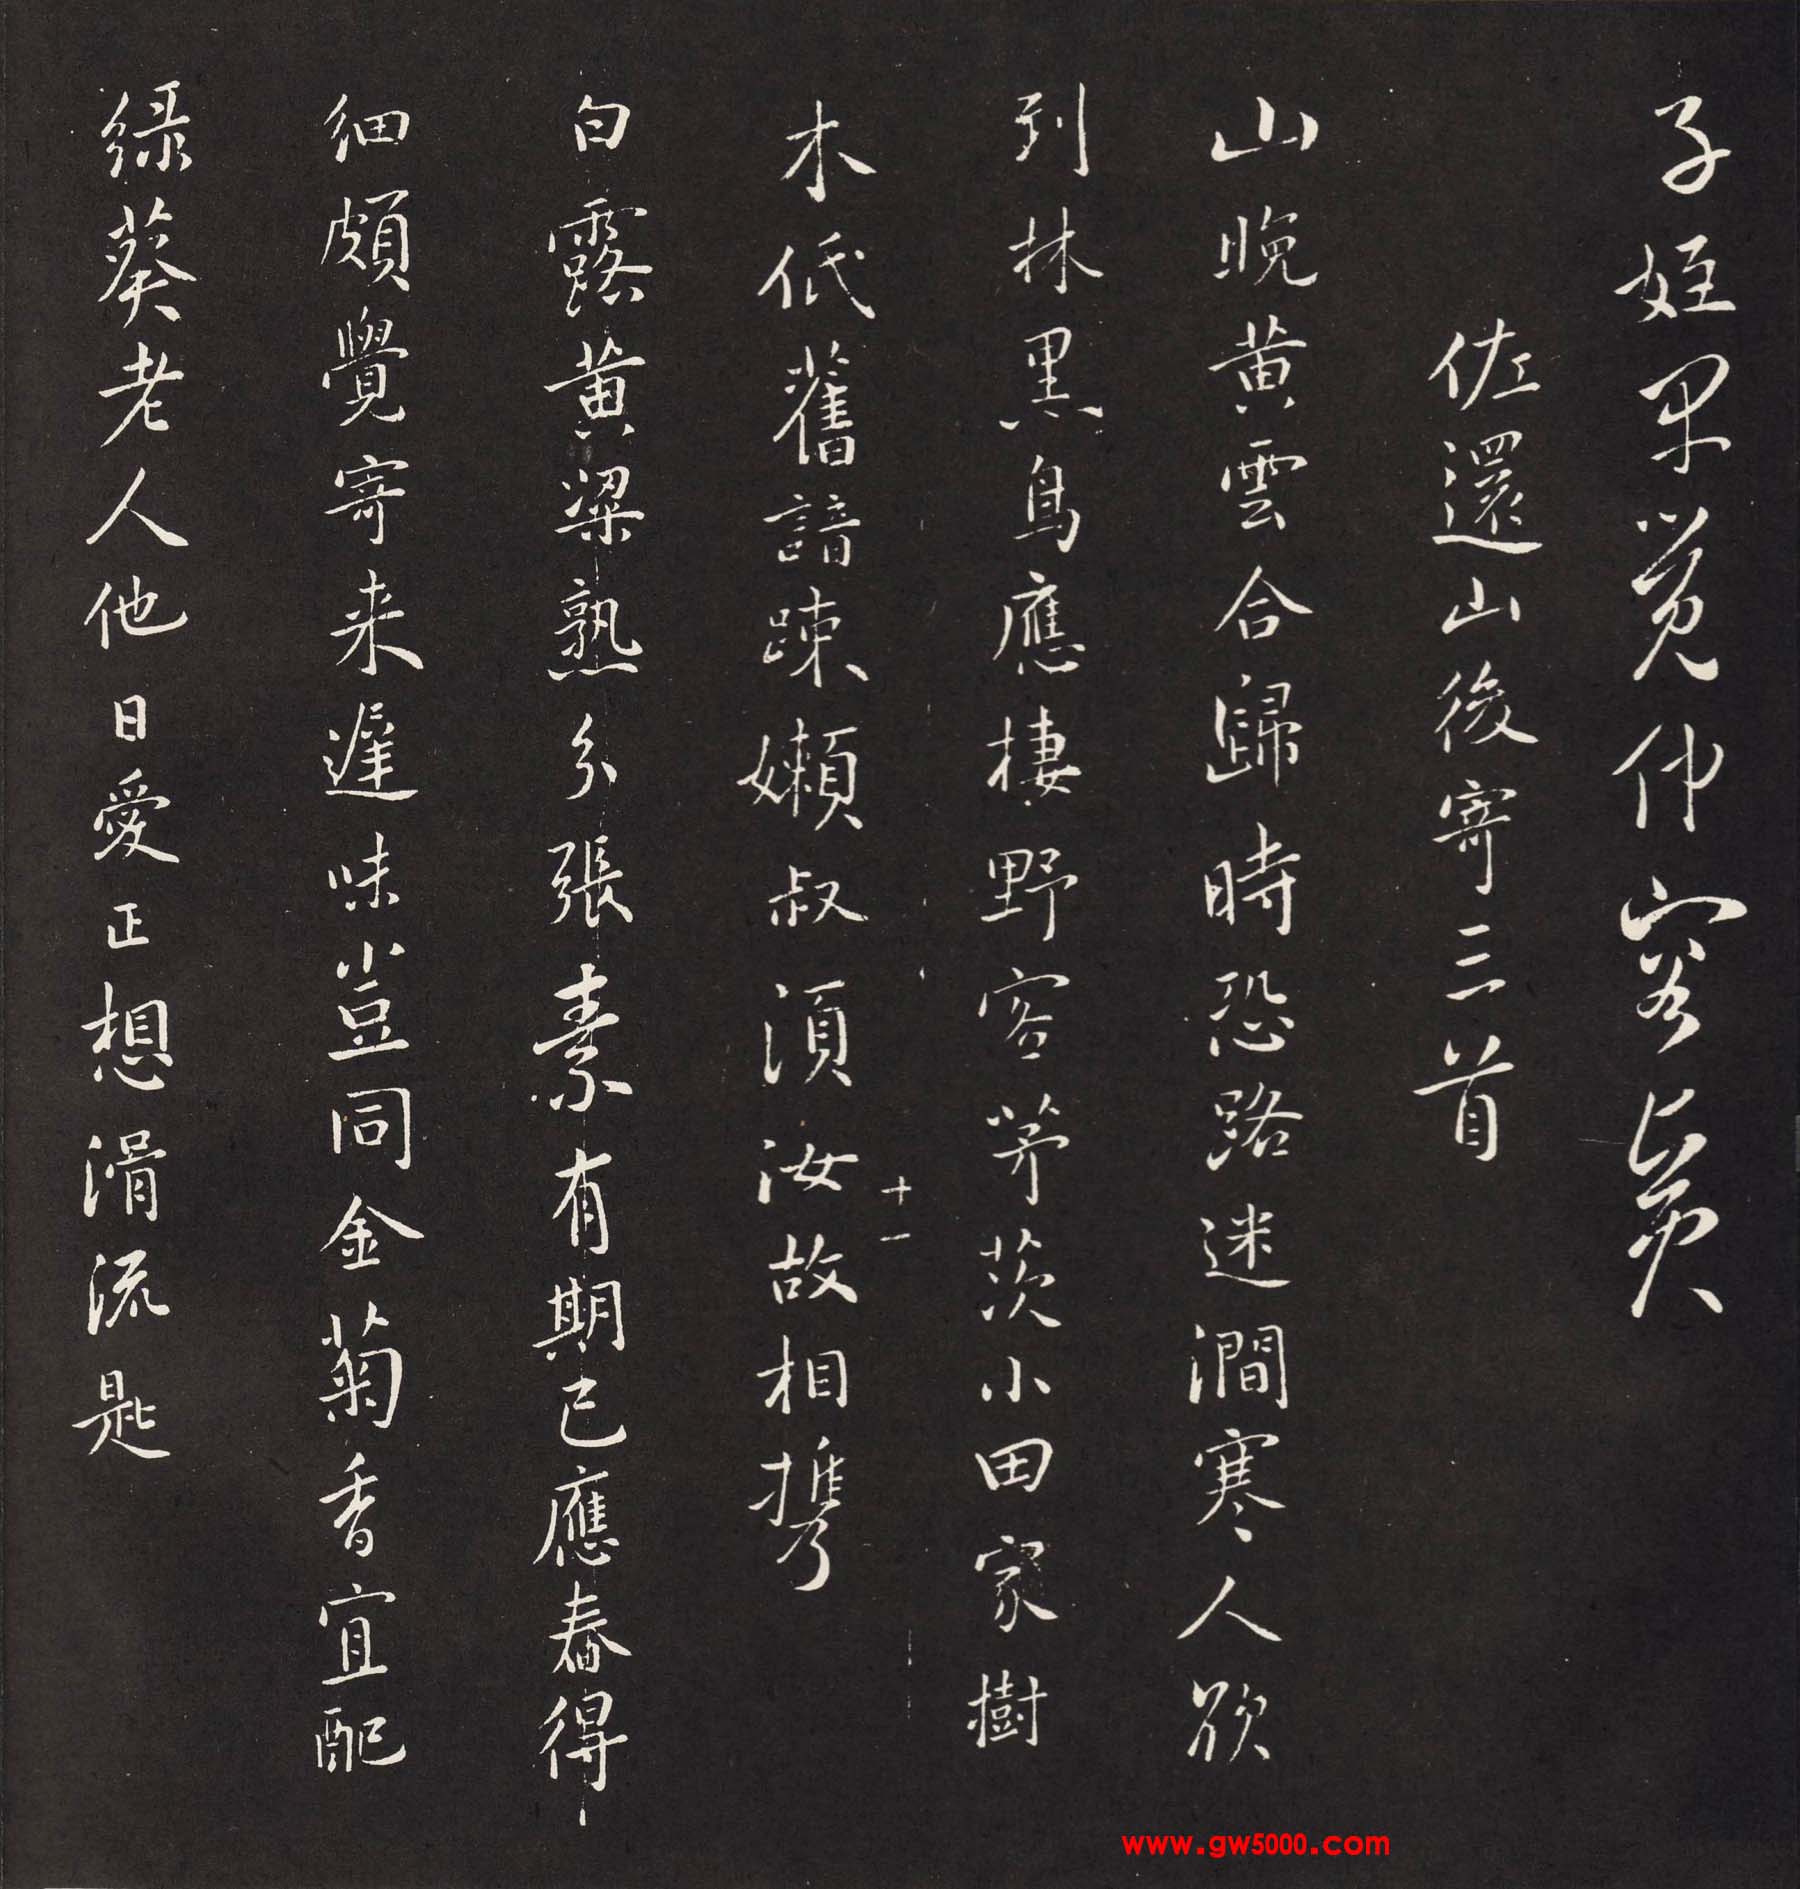 子姪早覺仲容賢
佐還山後寄三首
山晚黄雲合歸時恐路迷澗寒人欲
到林黑鳥應棲野客茅茨小田家樹
十一
木低舊諳疎嬾叔須汝故相携
白露黄粱熟分張素有期已應舂得
細頗覺寄来遲味豈同金菊香宜配
綠葵老人他日愛正想滑流匙
www.gw5000.com